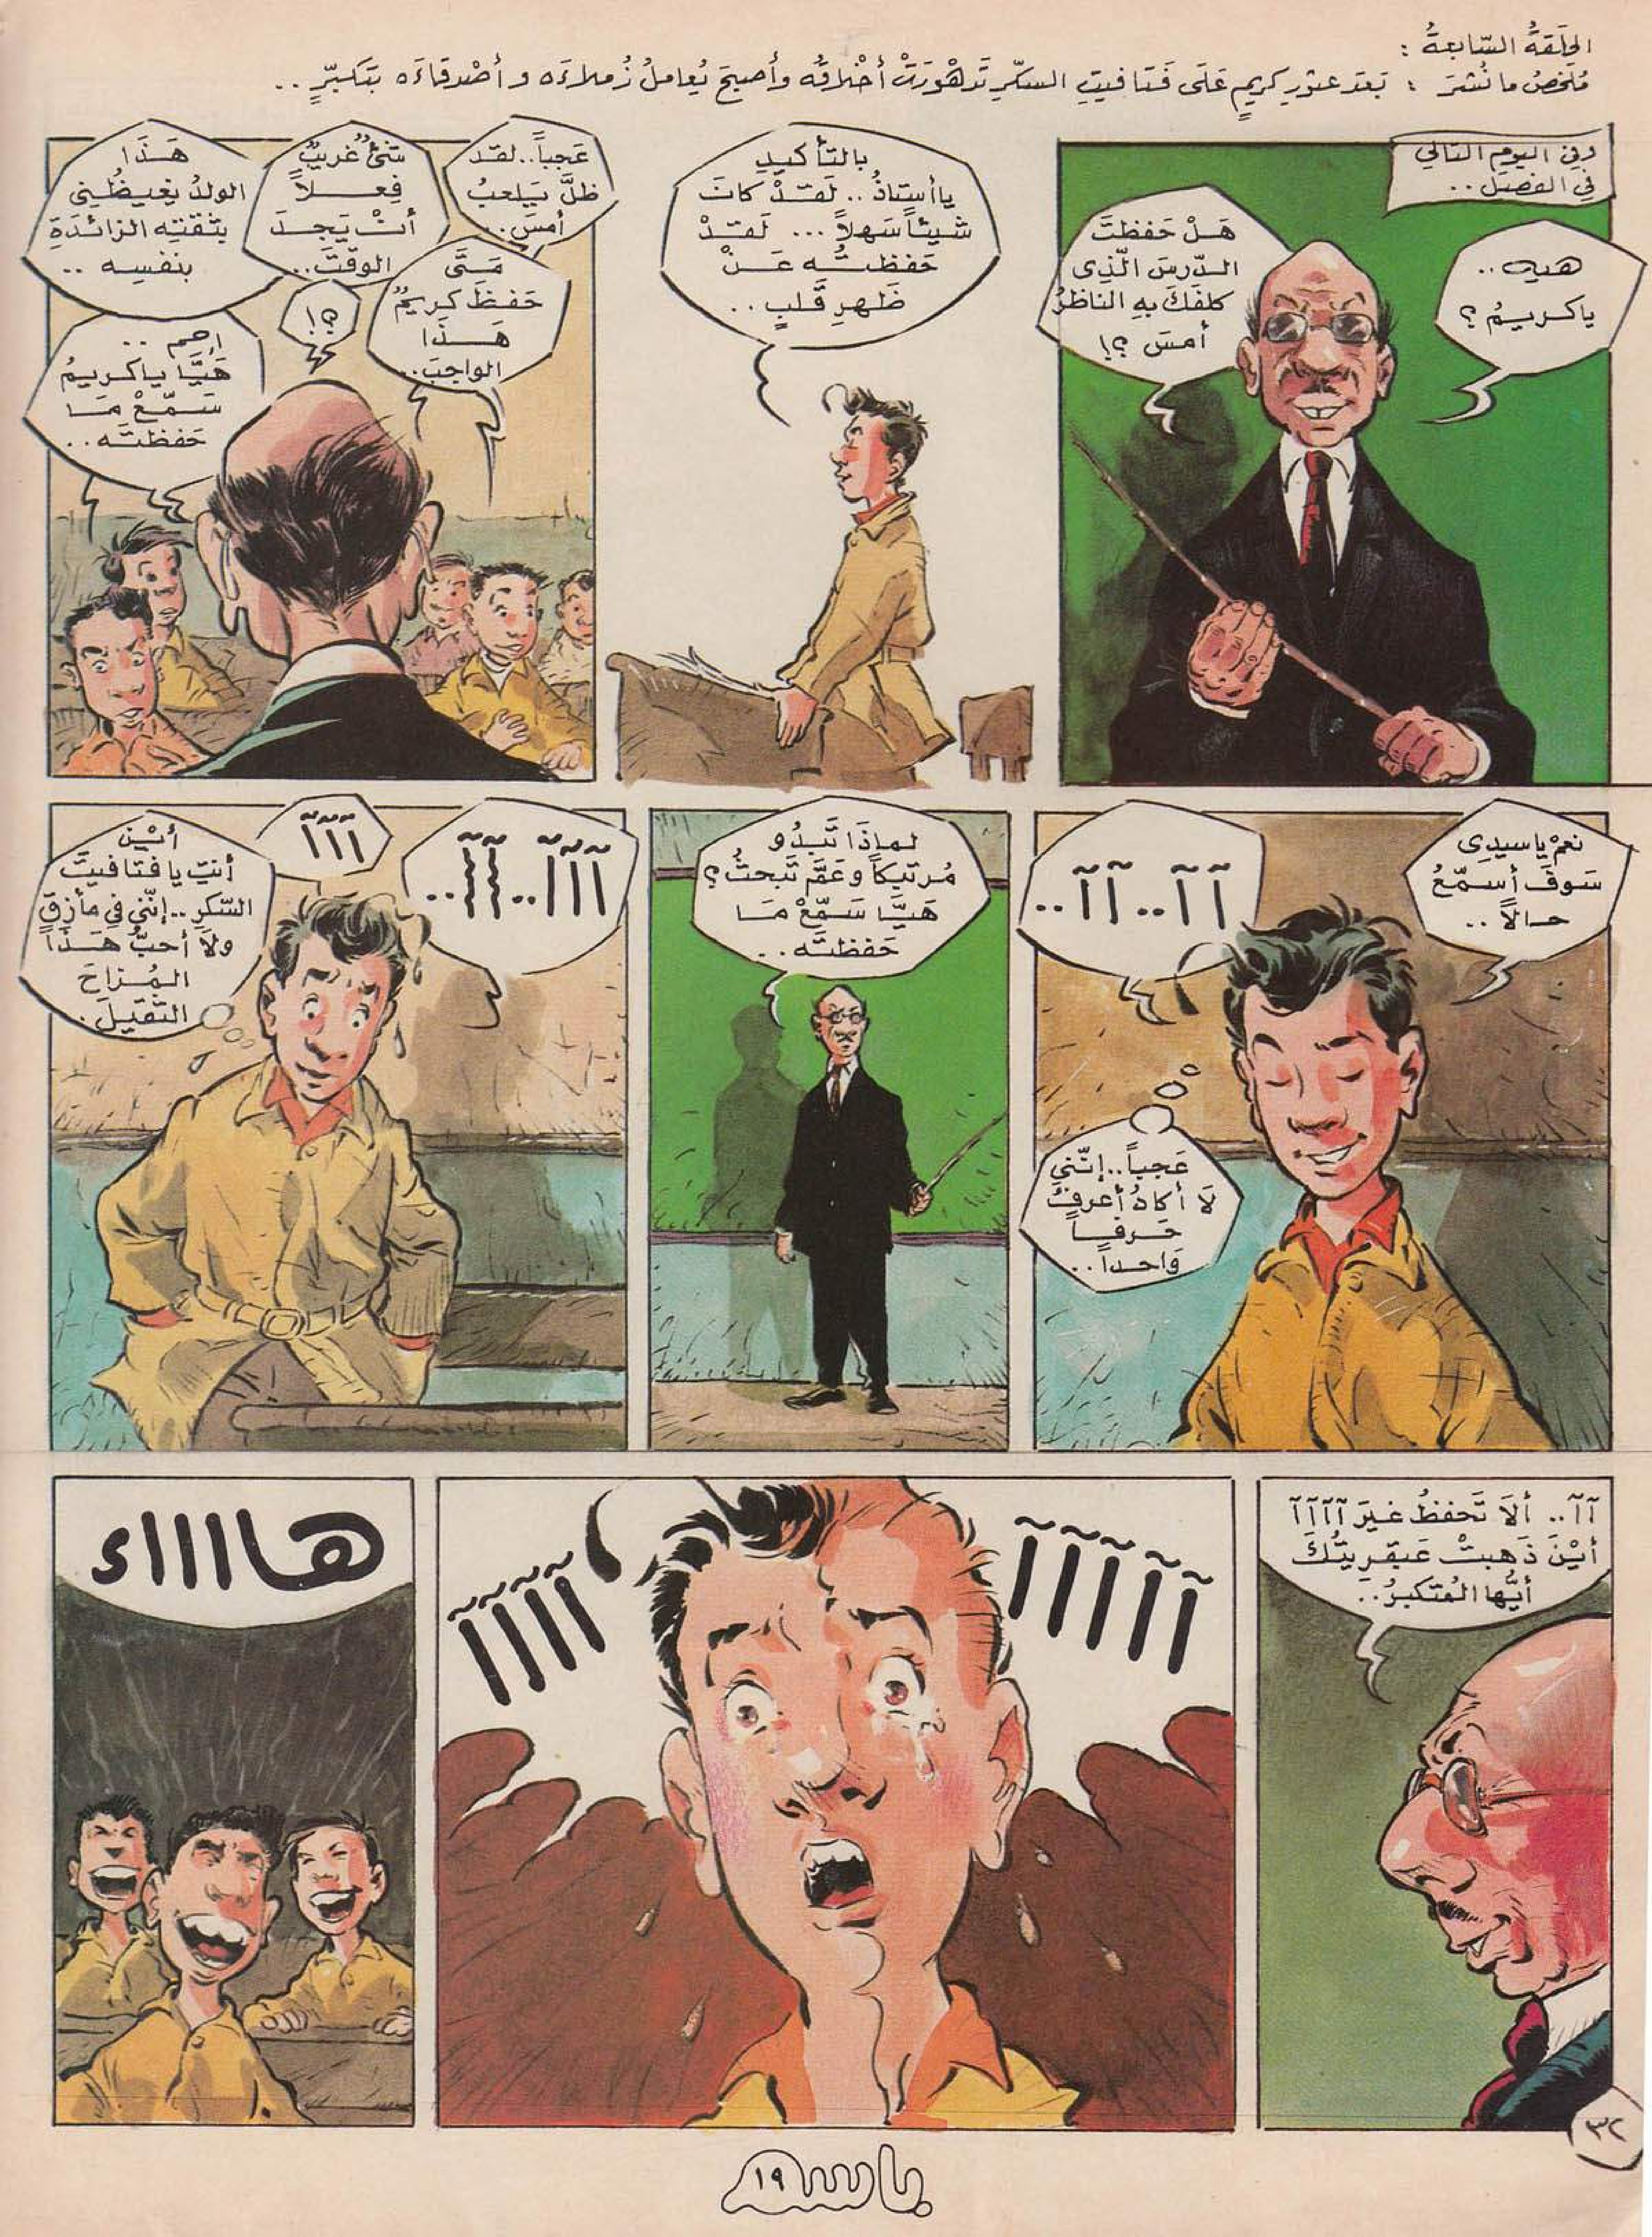 الحلقة السّابعة :
مُلخصُ ما نُشرَ : بَعدَ عثورِ كريمٍ عَلَى فَتافيتِ السكّرِ تَدهْورَتْ أخْلاقُه وأصبحَ يُعاملُ زُملاءَه و أصْدقاءَه بتَكبّرٍ ..
وفي اليومِ التالي
في الفصلِ ..
هيه ..
ياكريمُ ؟
هَلْ حَفظتَ
الدّرسَ الّذِى
كلفَكَ بِهِ الناظرُ
أمسَ ؟!
بالتأكيدِ
ياأستاذُ .. لَقدْ كانَ
شيئاً سَهلاً ... لَقدْ
حَفظتُه عَنْ
ظَهرِ قَلبٍ ..
عجباً .. لقد
ظلَّ يَلعبُ
أمسَ ..
مَتَى
حَفظَ كريمٌ
هَذَا
الواجبَ ..
شئٌ غريبٌ
فِعلاً
أنْ يَجدَ
الوقتَ ..
؟!
هَذَا
الولدُ يغيظُنِى
بثقتِه الزائدَةِ
بنفسِه ..
احم ..
هَيَّا ياكريمُ
سَمّعْ مَا
حَفظتَه ..
نعمْ ياسيدِى
سَوفَ أسمّعُ
حالاً ..
آ آ .. آ آ ..
عَجباً .. إنّني
لاَ أكادُ أعرفُ
حَرفاً
وَاحداً ..
لماذَا تَبدُو
مُرتبكاً وعَمَّ تَبحثُ ؟
هَيَّا سَمّعْ مَا
حَفظتَه ..
آآآ .. آآ ..
آآآ
أيْن
أنتِ يا فتافيتَ
السّكرِ .. إنّني في مأزقٍ
ولاَ أحبُّ هَذَا
المُزاحَ
الثّقيلَ .
آآ .. ألاَ تَحفظُ غيرَ آآآآ
أيْنَ ذَهبتْ عَبقريتُكَ
أيُّها المُتكبرُ ..
آآآآآ
آآآآ
هااااء
٣٢
باسم
١٩